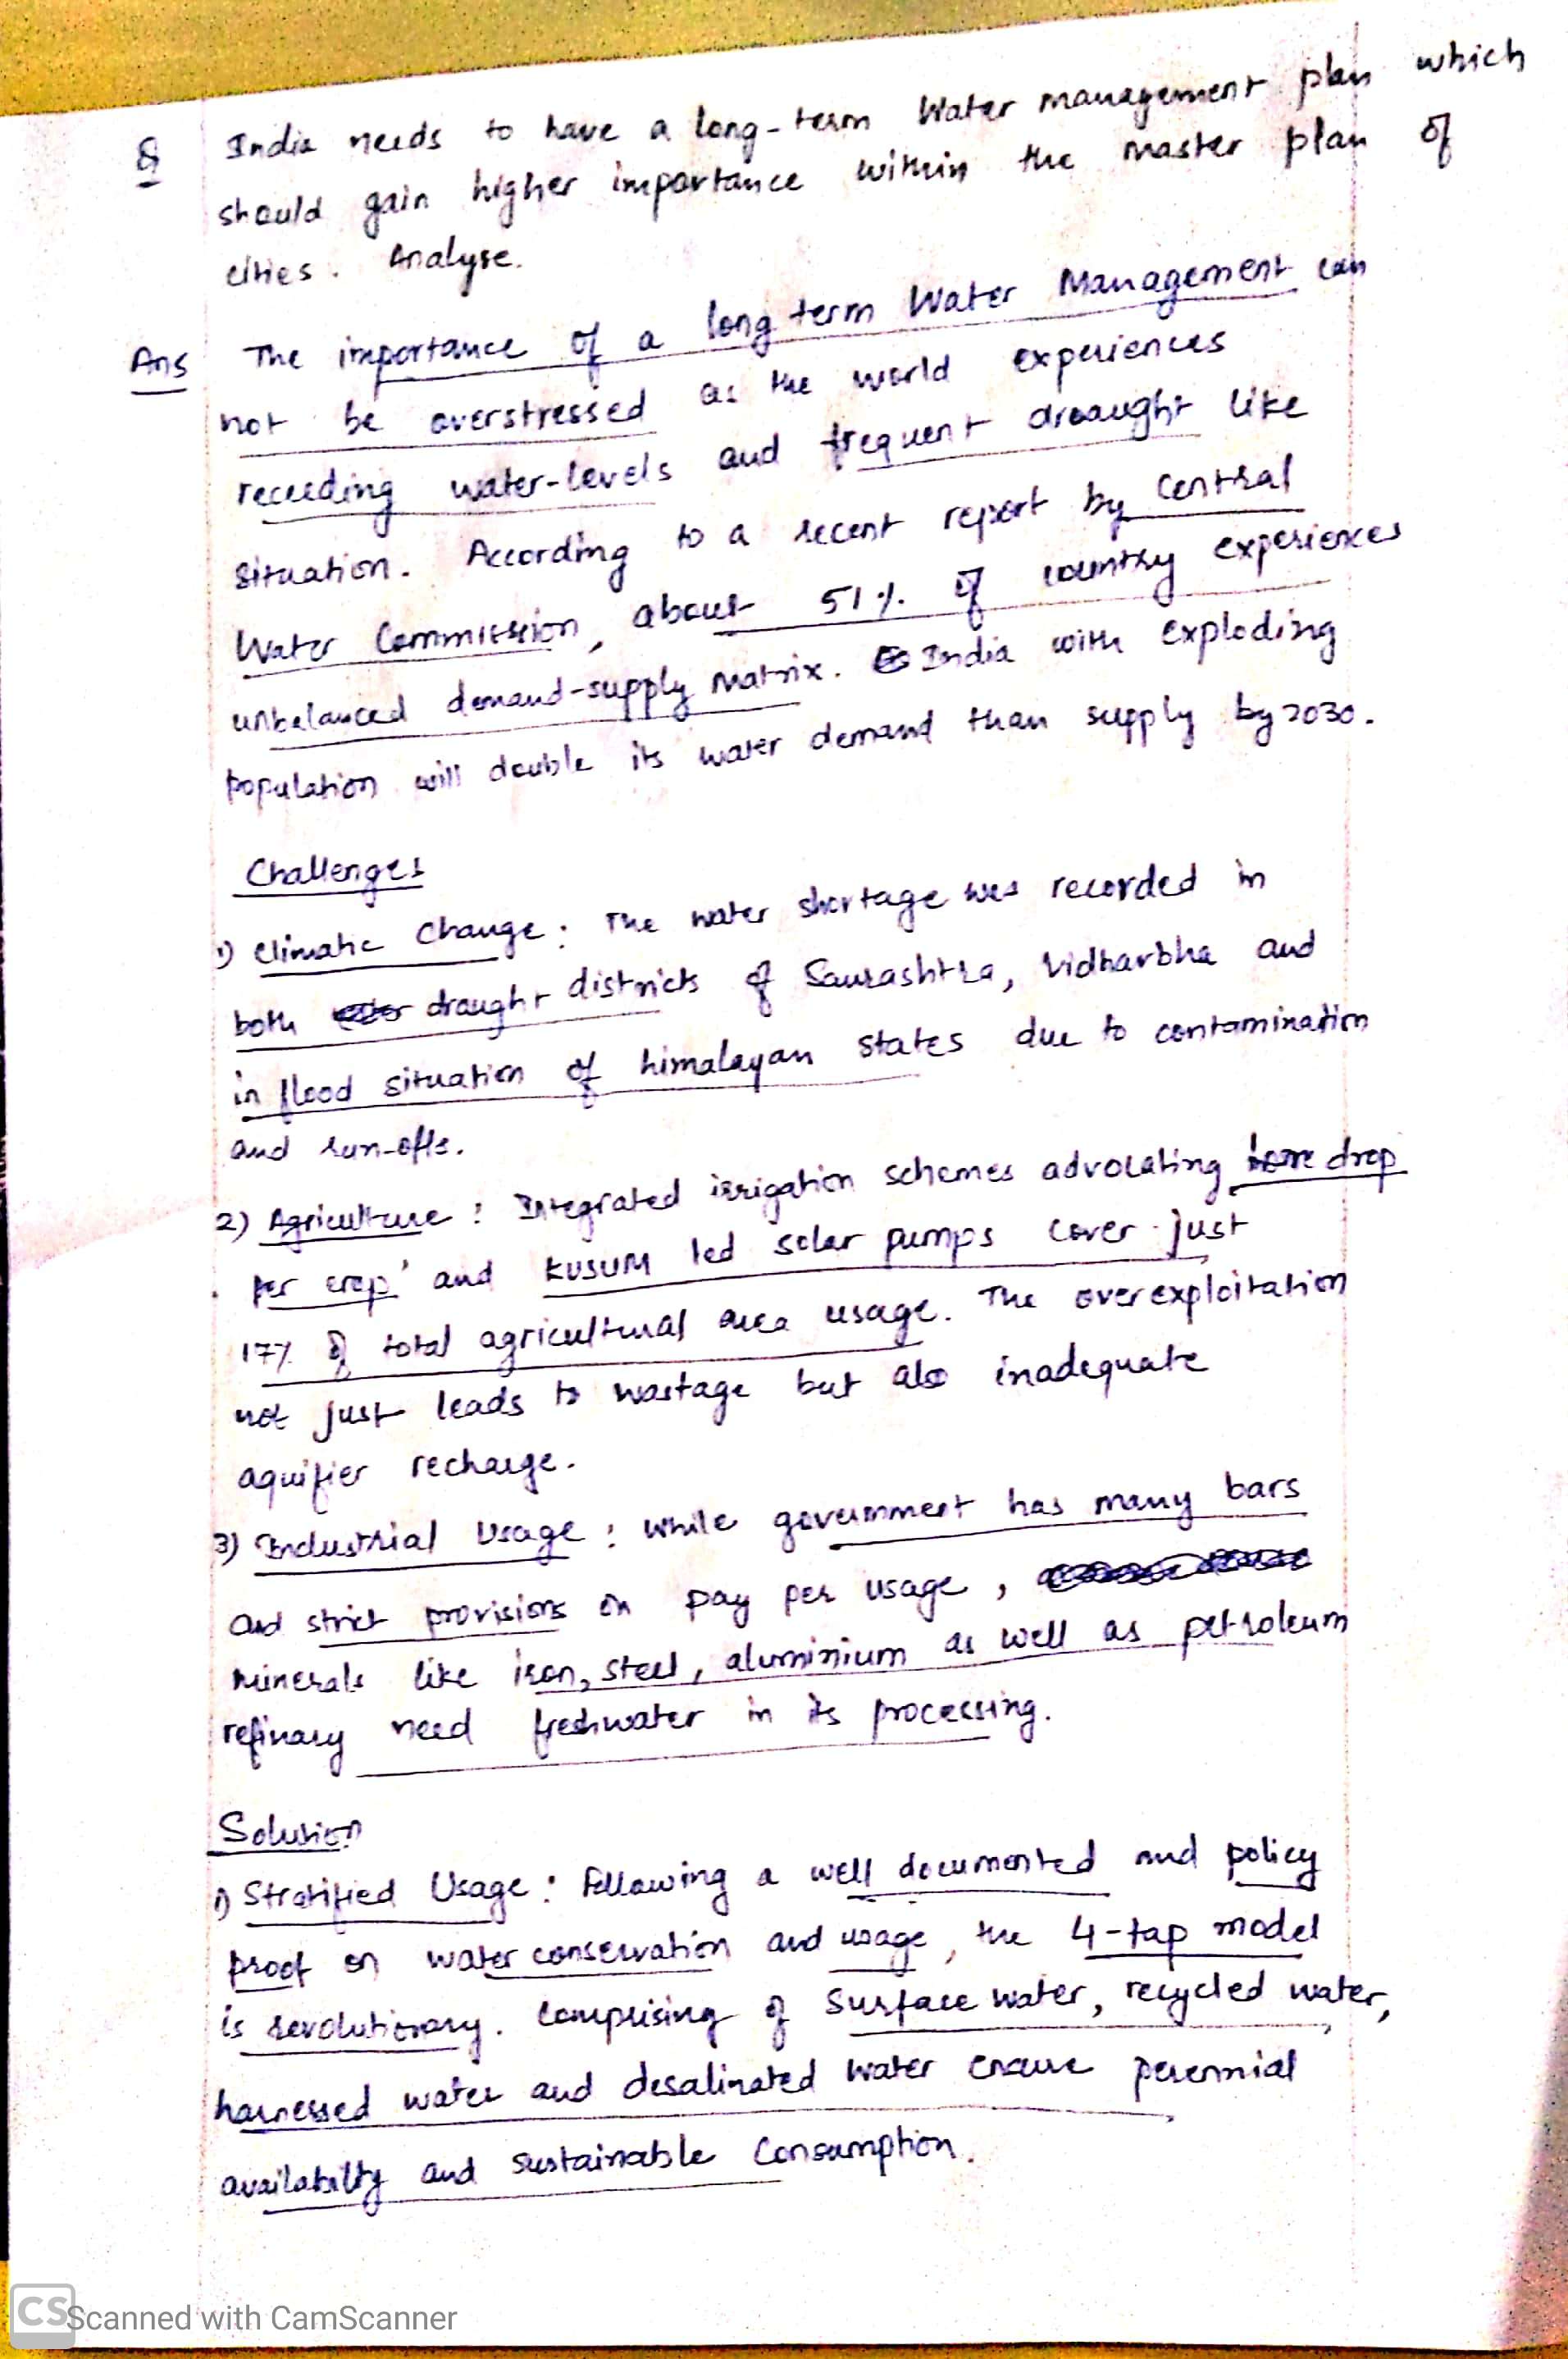 Q India needs to have a long-term Water management plan which
should gain higher importance within the master plan of
cities. Analyse.
Ans The importance of a long term Water Management can
not be overstressed as the world experiences
receeding water-levels and frequent draought like
situation. According to a recent report by Central
Water Commission, about 51% of country experiences
unbalanced demand-supply matrix. India with exploding
population will double its water demand than supply by 2030.
Challenges
1) Climatic Change : The water shortage was recorded in
both draught districts of Saurashtra, Vidharbha and
in flood situation of himalayan states due to contamination
and run-offs.
2) Agriculture : Integrated irrigation schemes advocating drop
per crop' and KUSUM led solar pumps cover just
17% of total agricultural area usage. The overexploitation
not just leads to wastage but also inadequate
aquifier recharge.
3) Industrial Usage : While government has many bars
and strict provisions on pay per usage ,
minerals like iron, steel, aluminium as well as petroleum
refinary need freshwater in its processing.
Solution
1) Stratified Usage : Following a well documented and policy
proof on water conservation and usage, the 4-tap model
is revolutionary. Comprising of Surface water, recycled water,
harnessed water and desalinated water ensure perennial
availabilty and sustainable Consumption.
CS Scanned with CamScanner